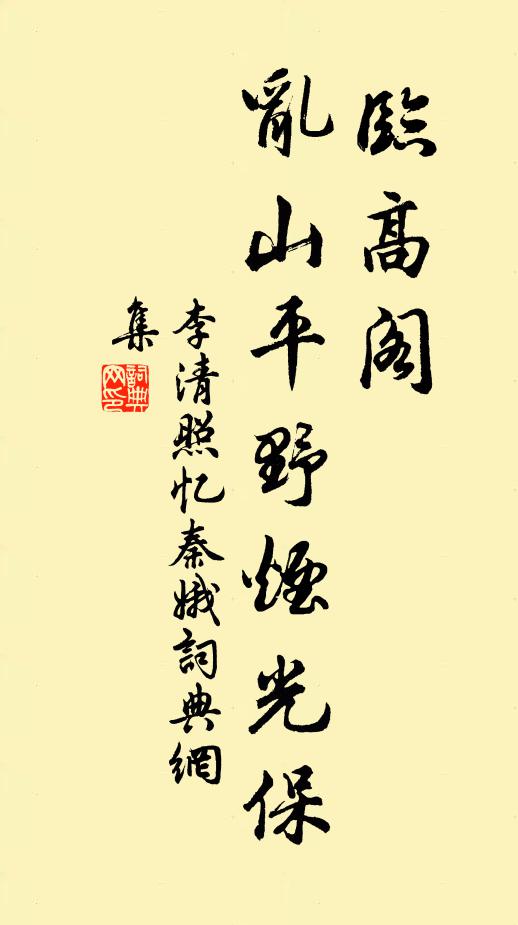 臨高阁
亂山平野煙光保
李清照忆秦娥詞典網
集
詞典
网印